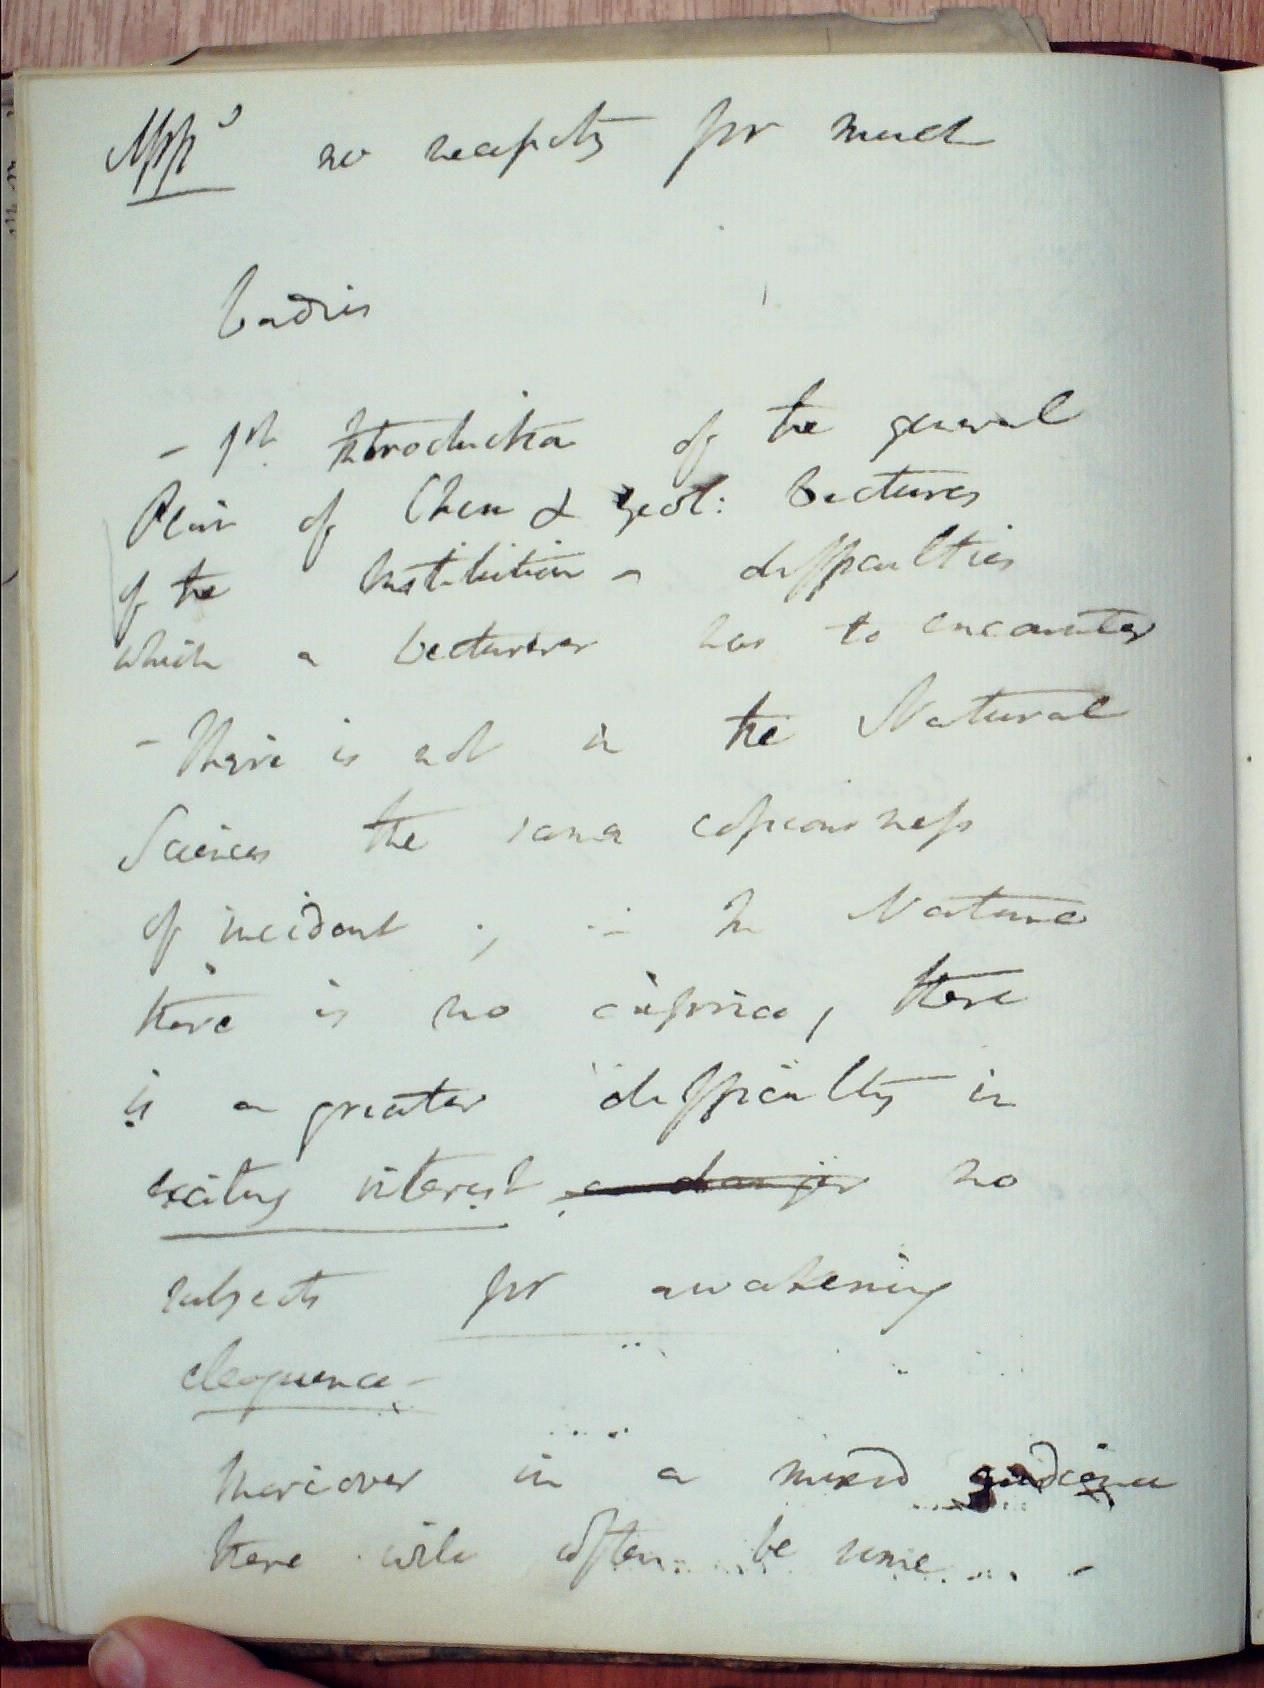 no necessity for much
Ladies
- 1st Introduction of the general
Plan of Chem & geol: Lectures
of the Institution - difficulties
which a Lecturer has to encounter
- There is not in the Natural
Sciences the same copiousness
of incident ; - In Nature
there is no caprice, there
is a greater difficulty in
exciting interest a danger no
subjects for awakening
eloquence -
Moreover in a mixed audience
there will often be some -